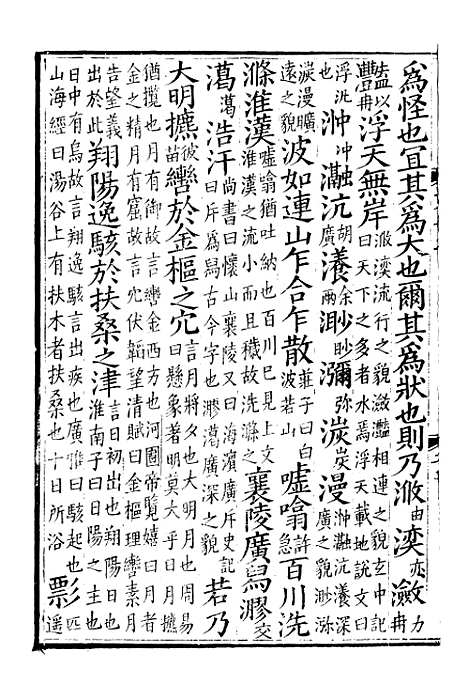 爲怪也宜其爲大也爾其爲狀也則乃浟由湙亦瀲力冉
灩以冉浮天無岸浟湙流行之貌瀲灩相連之貌玄中記曰天下之多者水焉浮天載地說文曰
浮沉也沖冲瀜沆胡廣瀁余兩渺眇瀰弥湠炭漫沖瀜沆瀁深廣之貌渺瀰
湠漫曠遠之貌波如連山乍合乍散莊子曰白波若山噓噏許急百川洗
滌淮漢噓噏猶吐納也百川已見上文淮漢之流小而且穢故洗滌之襄陵廣舄膠交
葛葛浩汗尚書曰懷山襄陵又曰海濱廣斥史記曰斥爲舄古今字也膠葛廣深之貌若乃
大明摭彼苗轡於金樞之穴言月將夕也大明月也周易曰懸象著明莫大乎日月摭
猶攬也月有御故言轡金西方也河圖帝覽嬉曰月者金之精月有窟故言穴伏韜望清賦曰金樞理轡素月
告望義出於此翔陽逸駭於扶桑之津言日初出也翔陽日也淮南子曰日陽之主也
日中有烏故言翔逸駭言出疾也廣雅曰駭起也山海經曰湯谷上有扶木者扶桑也十日所浴彯匹遥